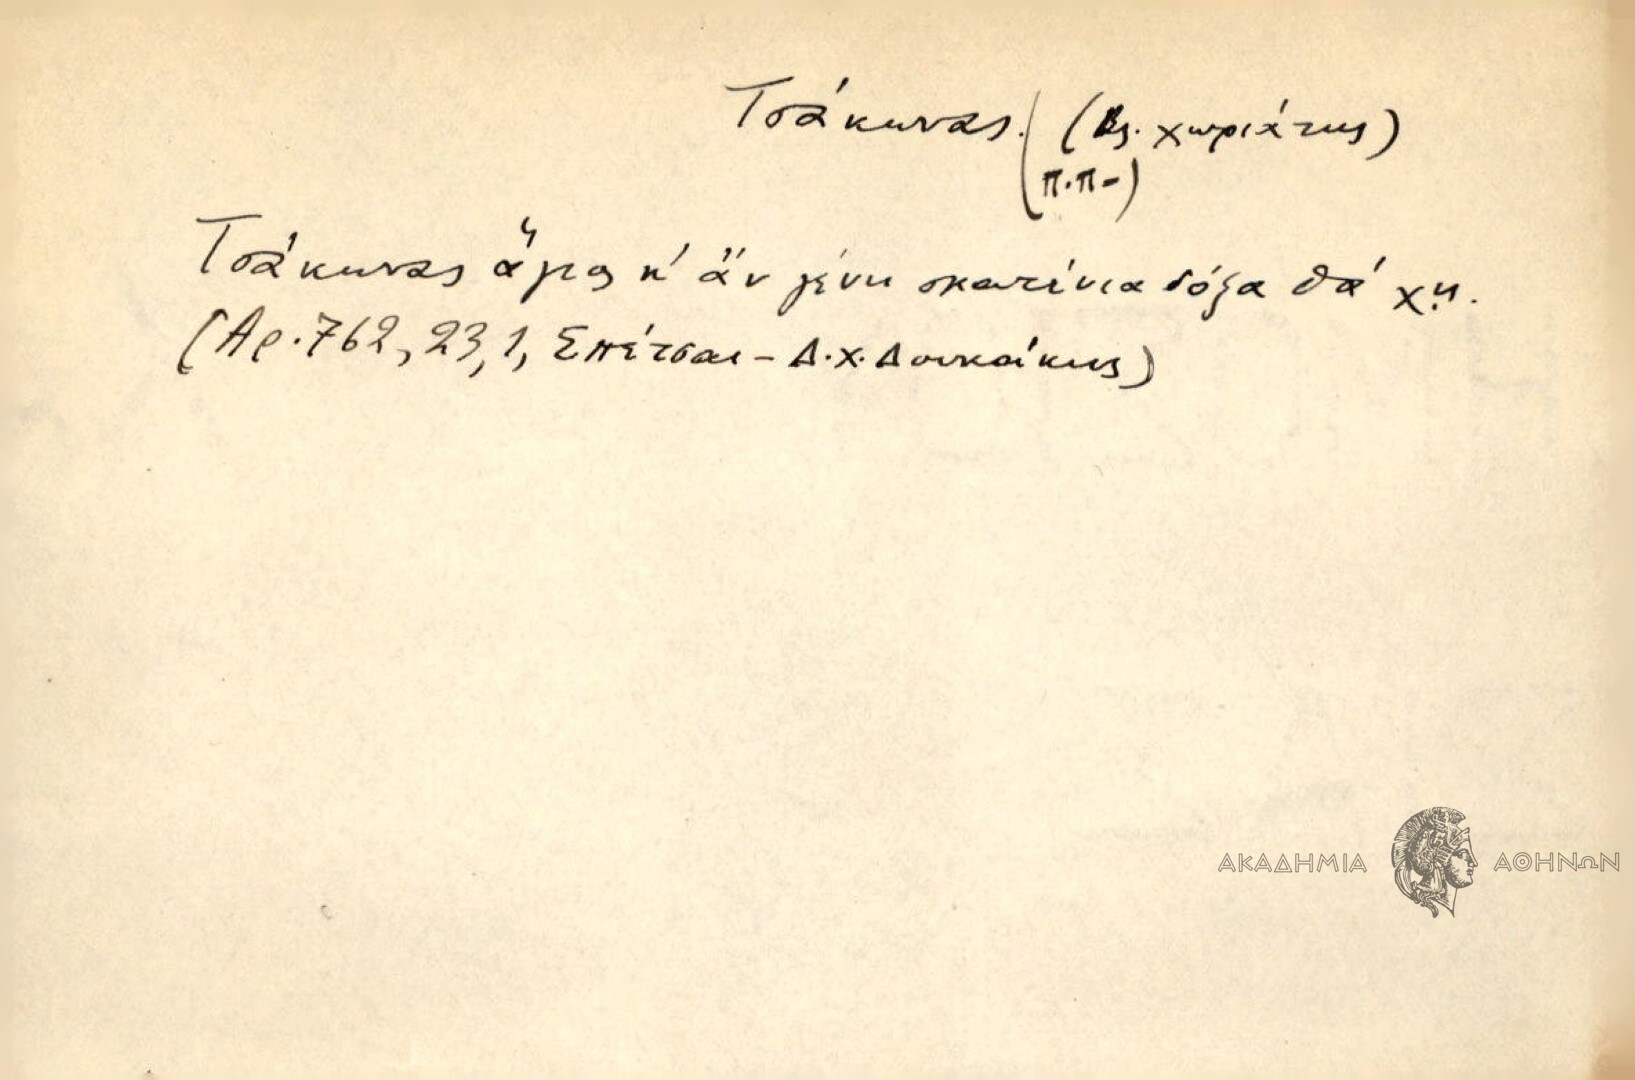 Τσάκωνας. (Βλ. χωριάτης)
(π.π-)
Τσάκωνας ἅγιος κ' ἂν γένη σκατένια δόξα θά χῃ.
(Αρ. 762, 23, 1, Σπέτσαι - Δ. Χ. Δουκάκης)
ΑΚΑΔΗΜΙΑ ΑΘΗΝΩΝ